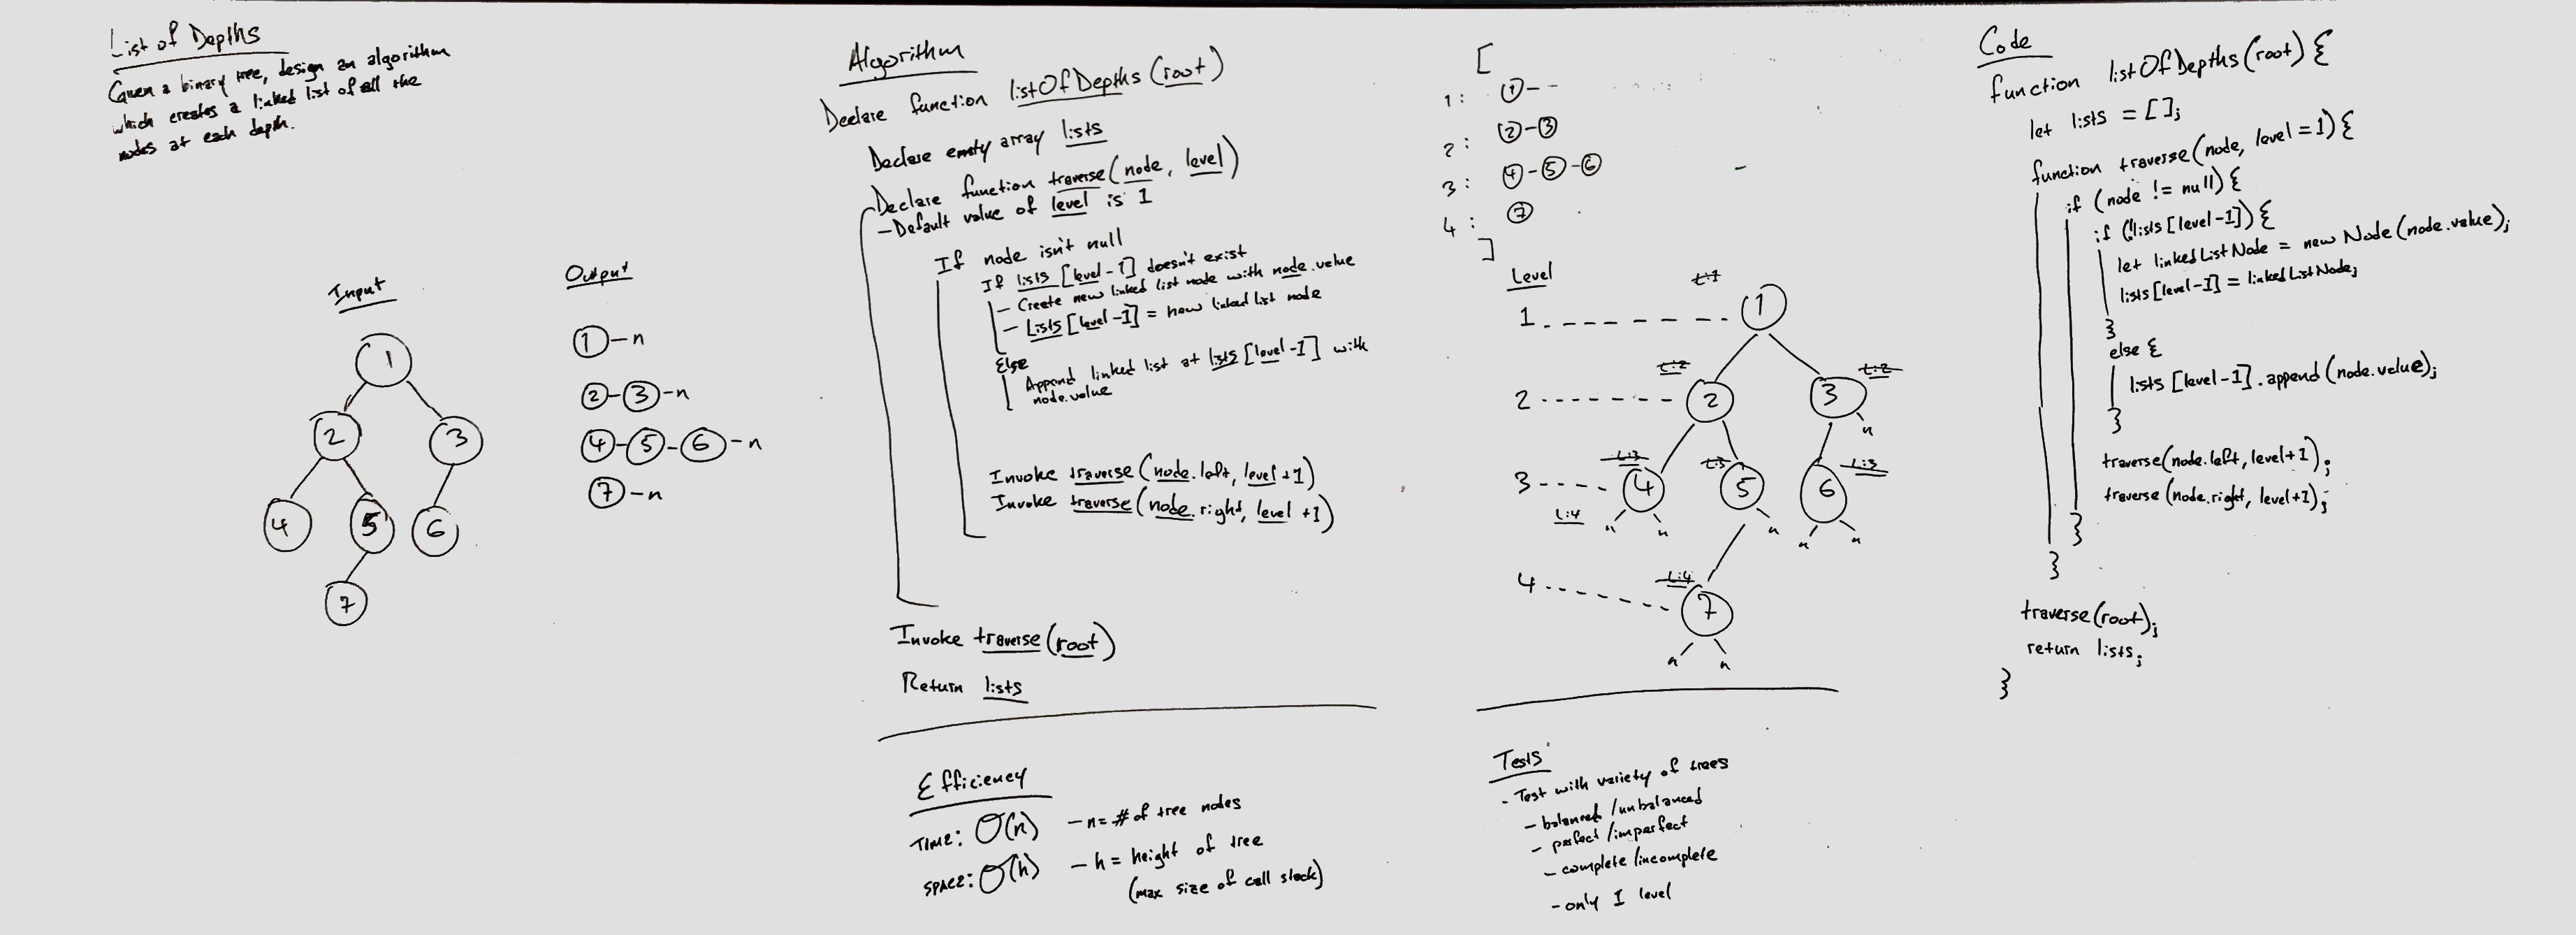 List of Depths
Given a binary tree, design an algorithm
which creates a linked list of all the
nodes at each depth.
Input
1
2 3
4 5 6
7
Output
1-n
2-3-n
4-5-6-n
7-n
Algorithm
Declare function listOfDepths (root)
Declare empty array lists
Declare function traverse(node, level)
- Default value of level is 1
If node isn't null
If lists [level-1] doesn't exist
- Create new linked list node with node.value
- Lists [level-1] = new linked list node
Else
Append linked list at lists [level-1] with
node.value
Invoke traverse (node.left, level+1)
Invoke traverse (node.right, level +1)
Invoke traverse (root)
Return lists
Efficiency
TIME: O(n) - n = # of tree nodes
SPACE: O(h) - h = height of tree
(max size of call stack)
[
1: 1--
2: 2-3
3: 4-5-6
4: 7
]
Level
L:1
1 1
L:2 L:2
2 2 3
n
L:3 L:3 L:3
3 4 5 6
L:4 n n n n n
L:4
4 7
n n
Tests
- Test with variety of trees
- balanced / unbalanced
- perfect / imperfect
- complete / incomplete
- only 1 level
Code
function listOfDepths(root) {
let lists = [];
function traverse(node, level=1) {
if (node != null) {
if (!lists [level-1]) {
let linkedListNode = new Node (node.value);
lists [level-1] = linkedListNode;
}
else {
lists [level-1].append (node.value);
}
traverse(node.left, level+1);
traverse (node.right, level+1);
}
}
traverse(root);
return lists;
}